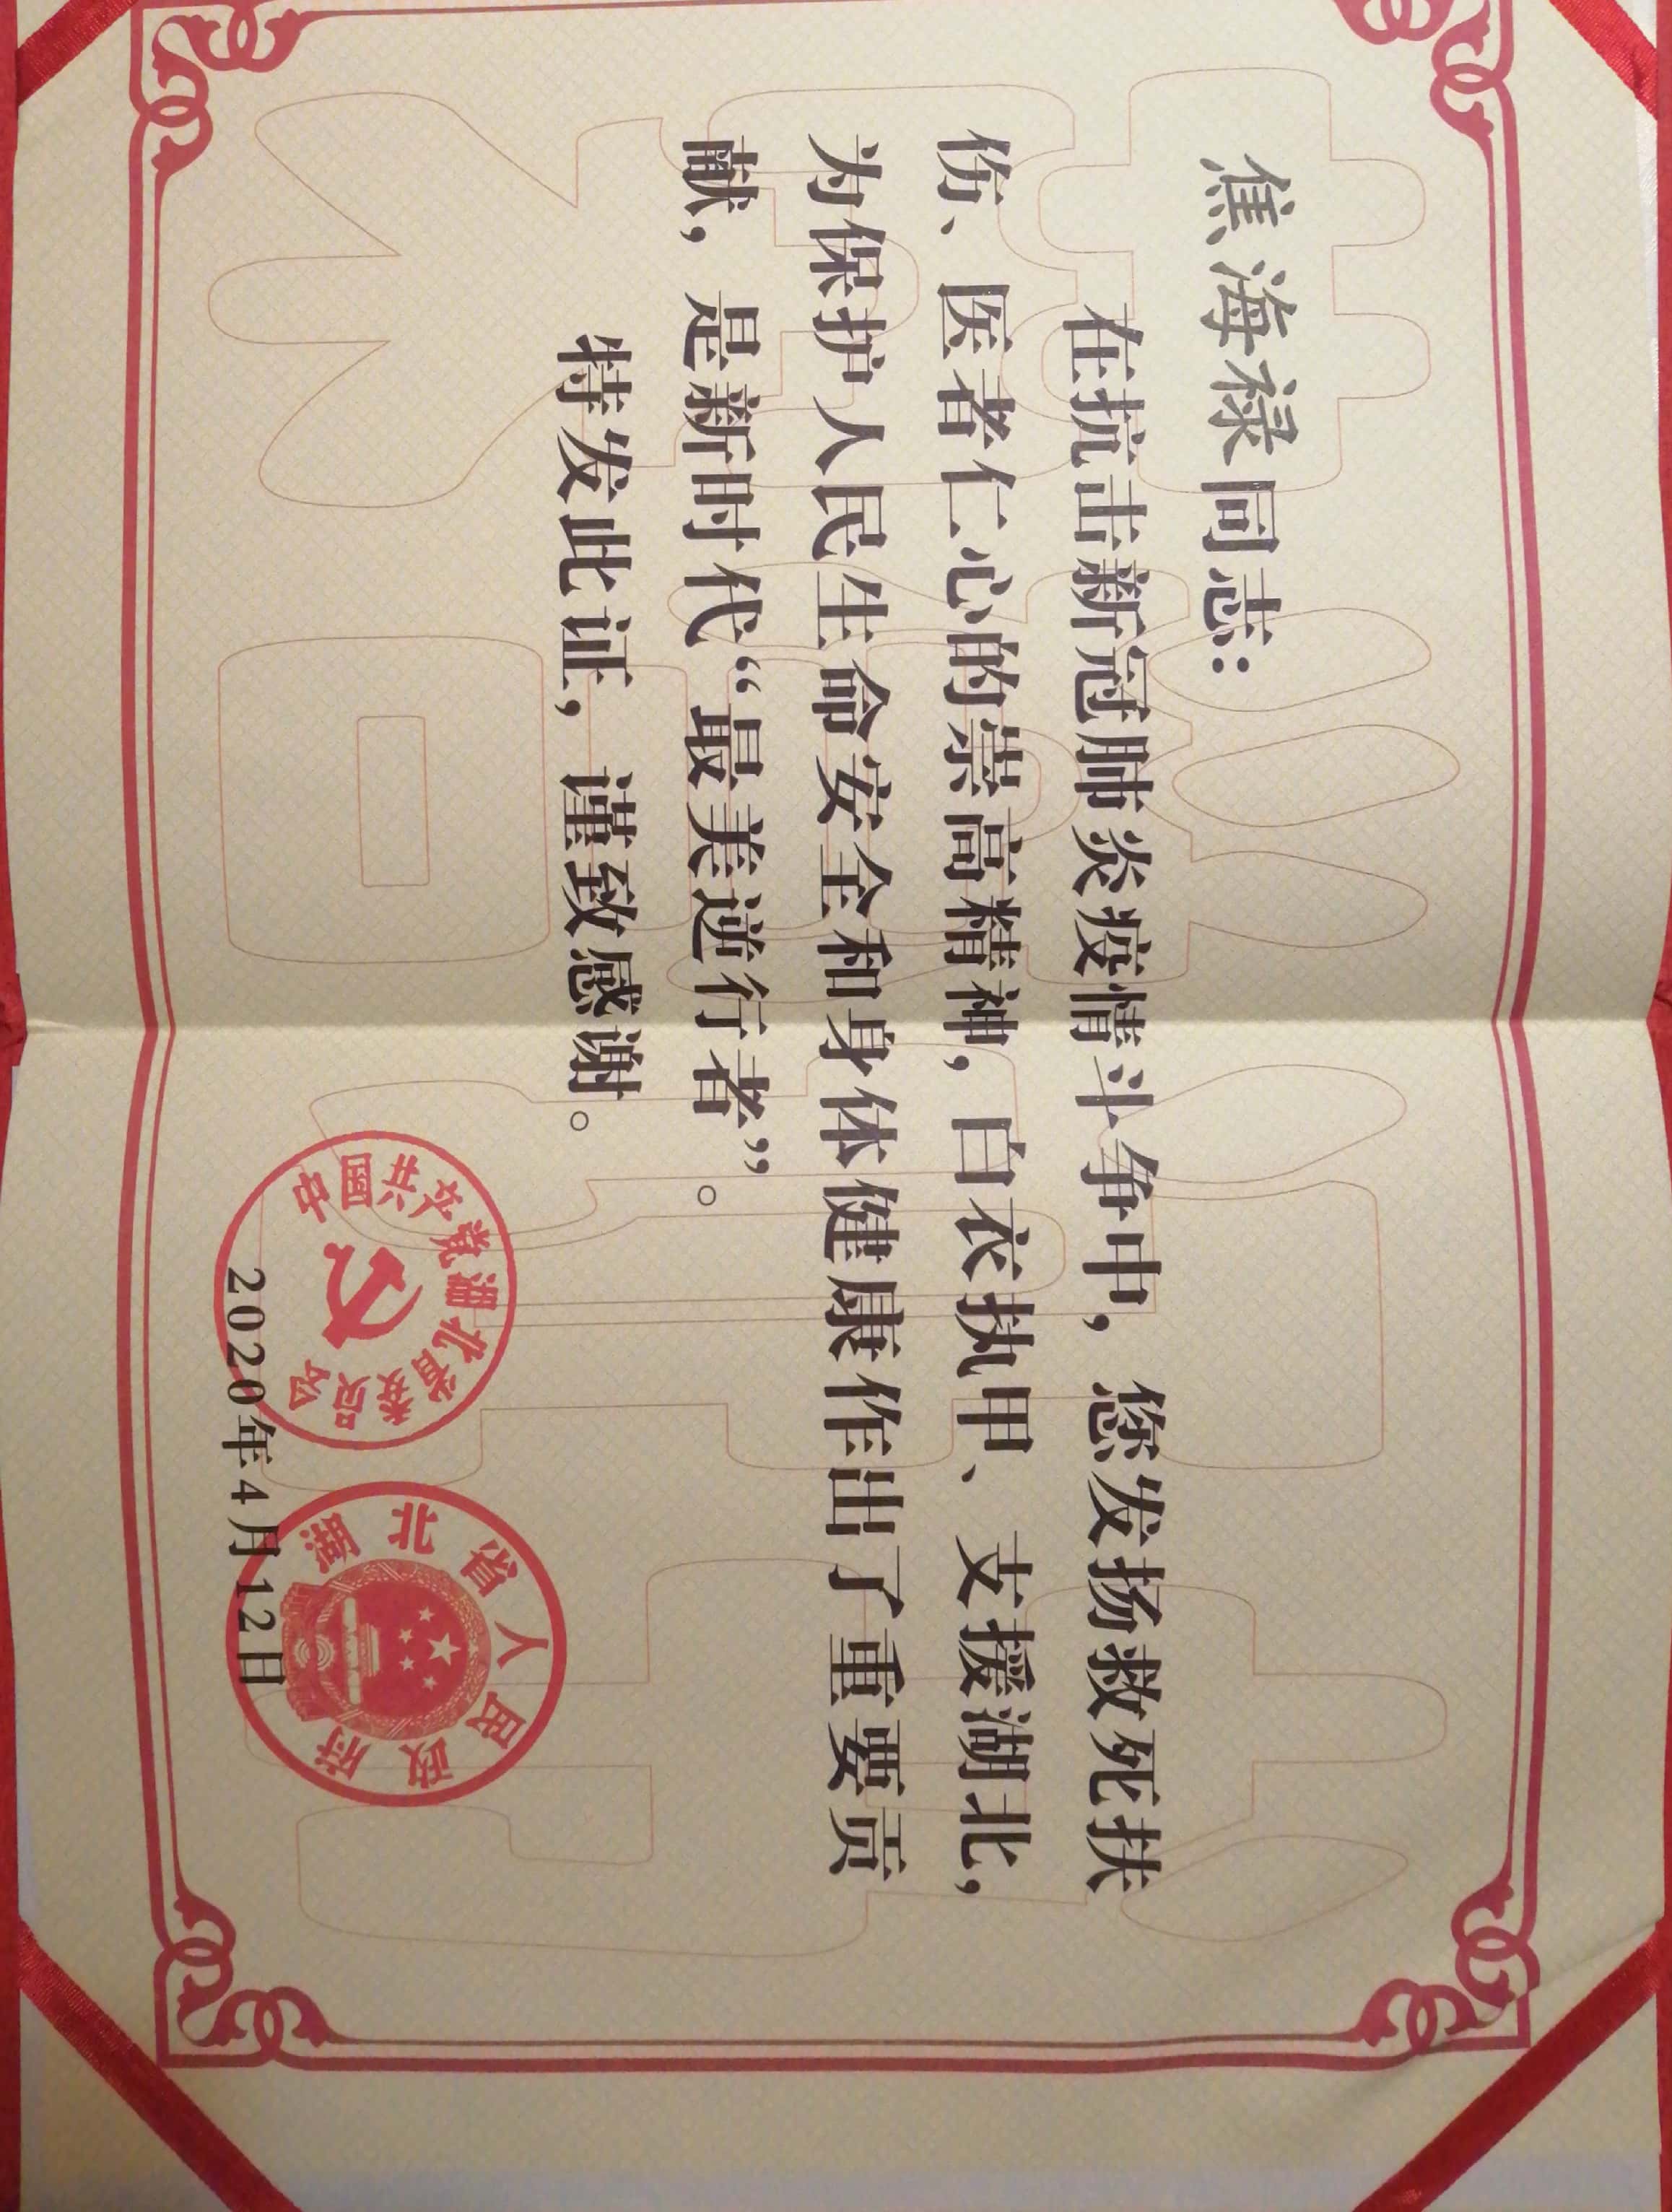 焦海禄同志：
在抗击新冠肺炎疫情斗争中，您发扬救死扶
伤、医者仁心的崇高精神，白衣执甲、支援湖北，
为保护人民生命安全和身体健康作出了重要贡
献，是新时代“最美逆行者”。
特发此证，谨致感谢。
中国共产党湖北省委员会
湖北省人民政府
2020年4月12日